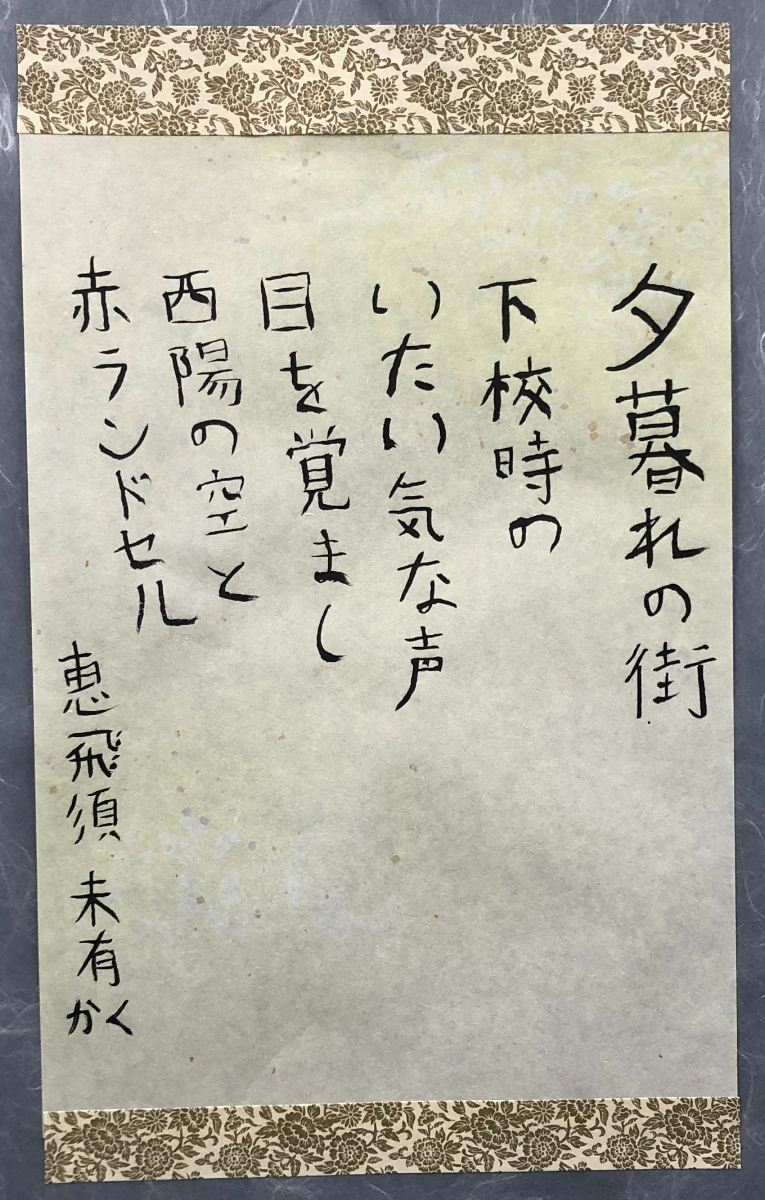 夕暮れの街
下校時の
いたい気な声
目を覚まし
西陽の空と
赤ランドセル
恵飛須 未有
かく